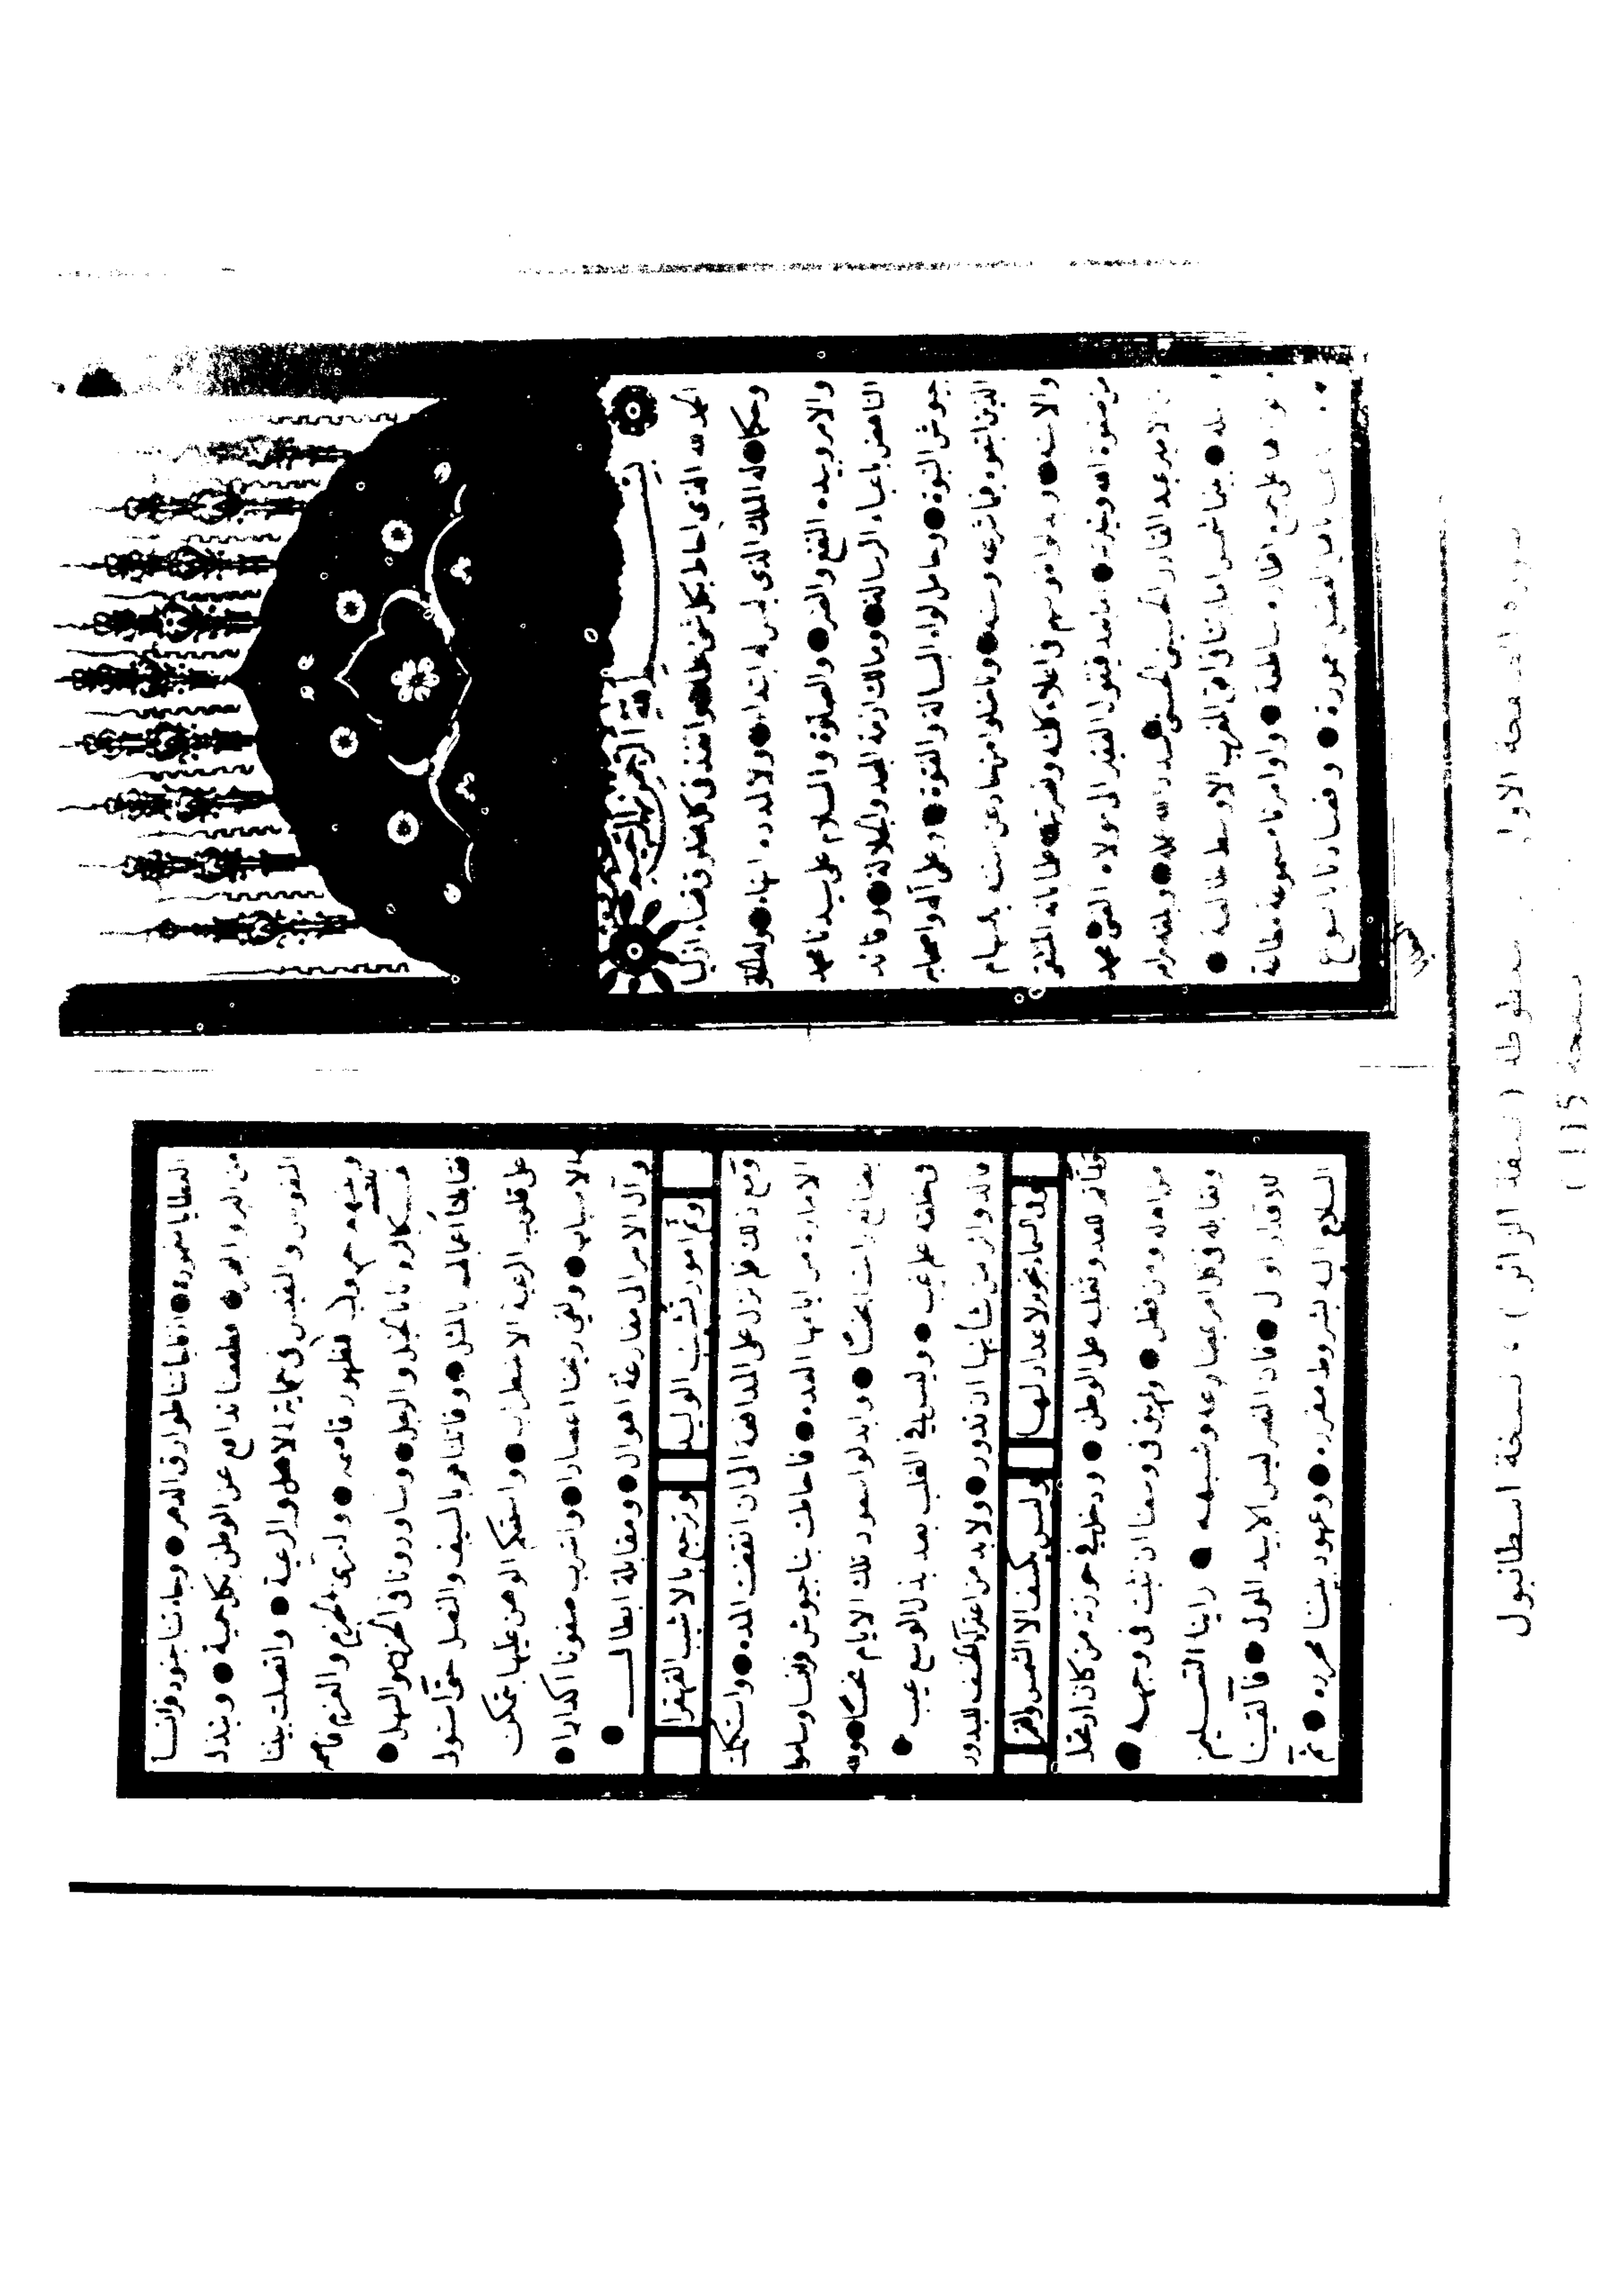 بسم الله الرحمن الرحيم
الحمد لله الذى احاط بكل شئ علما وانفذ فى كل مخلوق قضاء ازليا
وحكما له الملك الذى ليس له ابتداء ولا لمدده انتهاء وله الخلق
والامر وبيده النفع والضر والصلوة والسلام على سيدنا محمد
الناهض باعباء الرسالة ومالك ازمة المجد والجلالة وقائد
جيوش النبوة وحامل لواء البسالة والفتوة وعلى آله واصحابه
الذين اتبعوه فيما شرعه وسنه وناضلوا من حاد عن سننه بالسهام
والاسنة وبذلوا نفوسهم فى اعلاء كلمته ونصرته
من صفوة الله وخيرته اما بعد فيقول الفقير الى مولاه الغنى محمد
بن الامير عبد القادر الحسينى الحسنى
بينما شمس امارتنا فى افق المغرب الاوسط طالعة
على جميع اقطاره ساطعة واوامرنا مسموعة مطاعة
وقصادنا باسوغ
العطايا مغمورة اذ فاجأتنا طوارق الدهر وجاءتنا جنود فرانسا
من البر والبحر فطفقنا ندافع عن الوطن بكل حمية ونبذل
النفوس والنفيس فى حماية الاهل والرعية واتصلت بيننا
وبينهم حروب لظهور قاصمه ولعرى الحزم والعزم فاصمه
فكافرونا بالخيل والرجل وساورونا فى الحزن والسهل
فقابلنا اعمالهم بالمثل وقاتلناهم بالسيف والنصل حتى استولى
على قلوب الرعية الاضطراب واستحكم الوهن عليها بتمكن
الاسباب ولقى ريحنا اعصارا واشرب صفونا اكدارا
وآل الامر الى مقارعة اهوال ومقابلة ابطال
وثم امور تشيب الوليد ونرجع بالاشيب القهقرا
ومع ذلك فلم نزل على المدافعة الى ان انقضت المدة واستكملت
الامارة من ايامها العدة فاحاطت بنا جيوش فرنسا وسلبوا
بضائع راحتنا بخسا وابدلوا سعود تلك الايام نحسا ولله
فى خلقه علم غيب وليس فى الغلب بعد بذل الوسع عيب
فالدوائر من شأنها ان تدور ولا بد من اعتراء الخسف للبدور
وفى السماء نجوم لا عداد لها وليس يكسف الا الشمس والقمر
ولما تم للعدو تغلبه على الوطن ودخل فى حوزته من كان ارتحل
من اهله ومن قطن ولم يبق فى وسعنا ان نثبت فى وجهه
ونقابله فى كل امر بمضارعه وشبهه راينا التسليم
للاقدار اولى فان النصر ليس الا بيد المولى فالقينا
السلام اليه بشروط مقررة وعهود بيننا محررة ثم
صورة الصفحة الاولى من مخطوطة (تحفة الزائر)، نسخة اسطانبول
صفحة 115 (